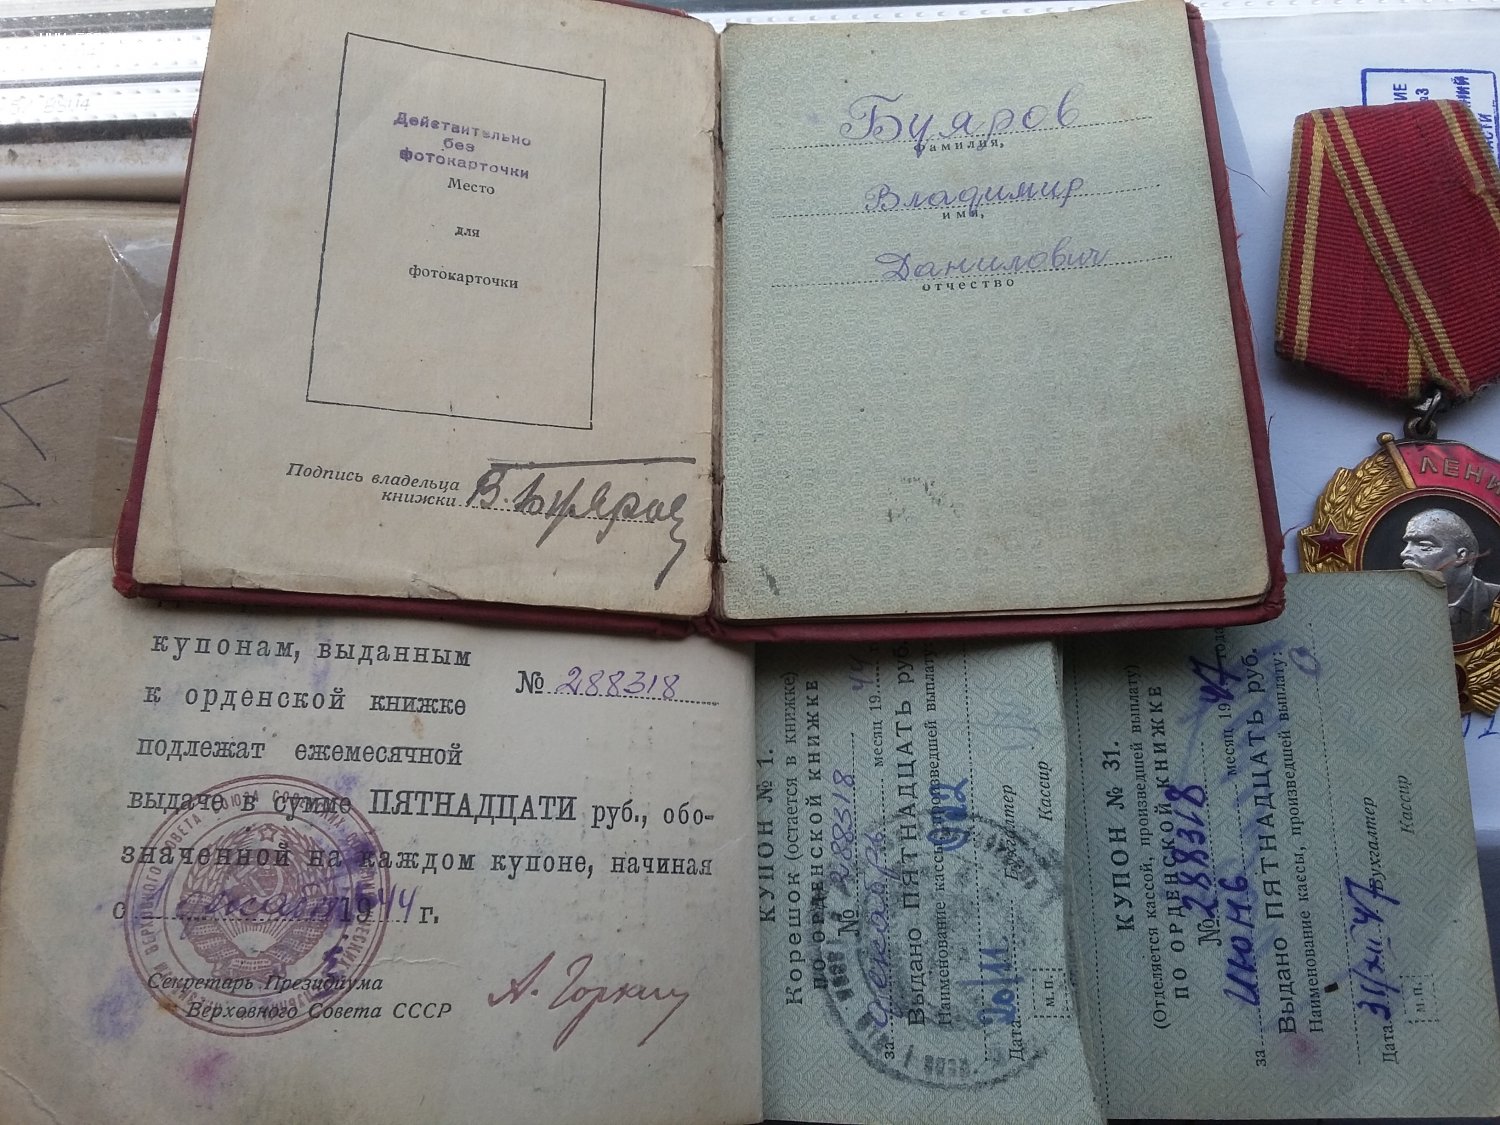 Действительно
без
фотокарточки
Место
для
фотокарточки
Подпись владельца
книжки В. Буяров
Буяров
фамилия,
Владимир
имя,
Данилович
отчество
купонам, выданным
к орденской книжке
подлежат ежемесячной
выдаче в сумме ПЯТНАДЦАТИ руб., обо-
значенной на каждом купоне, начиная
с 1944 г.
№ 288318
Секретарь Президиума
Верховного Совета СССР
А. Горкин
КУПОН № 1.
Корешок (остается в книжке)
ПО ОРДЕНСКОЙ КНИЖКЕ
№ 288318
за месяц 1944
Выдано ПЯТНАДЦАТЬ руб.
Наименование кассы, произведшей выплату:
922
Дата 20/11
Бухгалтер
Кассир
м.п.
КУПОН № 31.
(Отделяется кассой, произведшей выплату)
ПО ОРДЕНСКОЙ КНИЖКЕ
№ 288318
за июнь месяц 1947 года
Выдано ПЯТНАДЦАТЬ руб.
Наименование кассы, произведшей выплату:
Дата 31/XII 47
Бухгалтер
Кассир
м.п.
ЛЕНИ